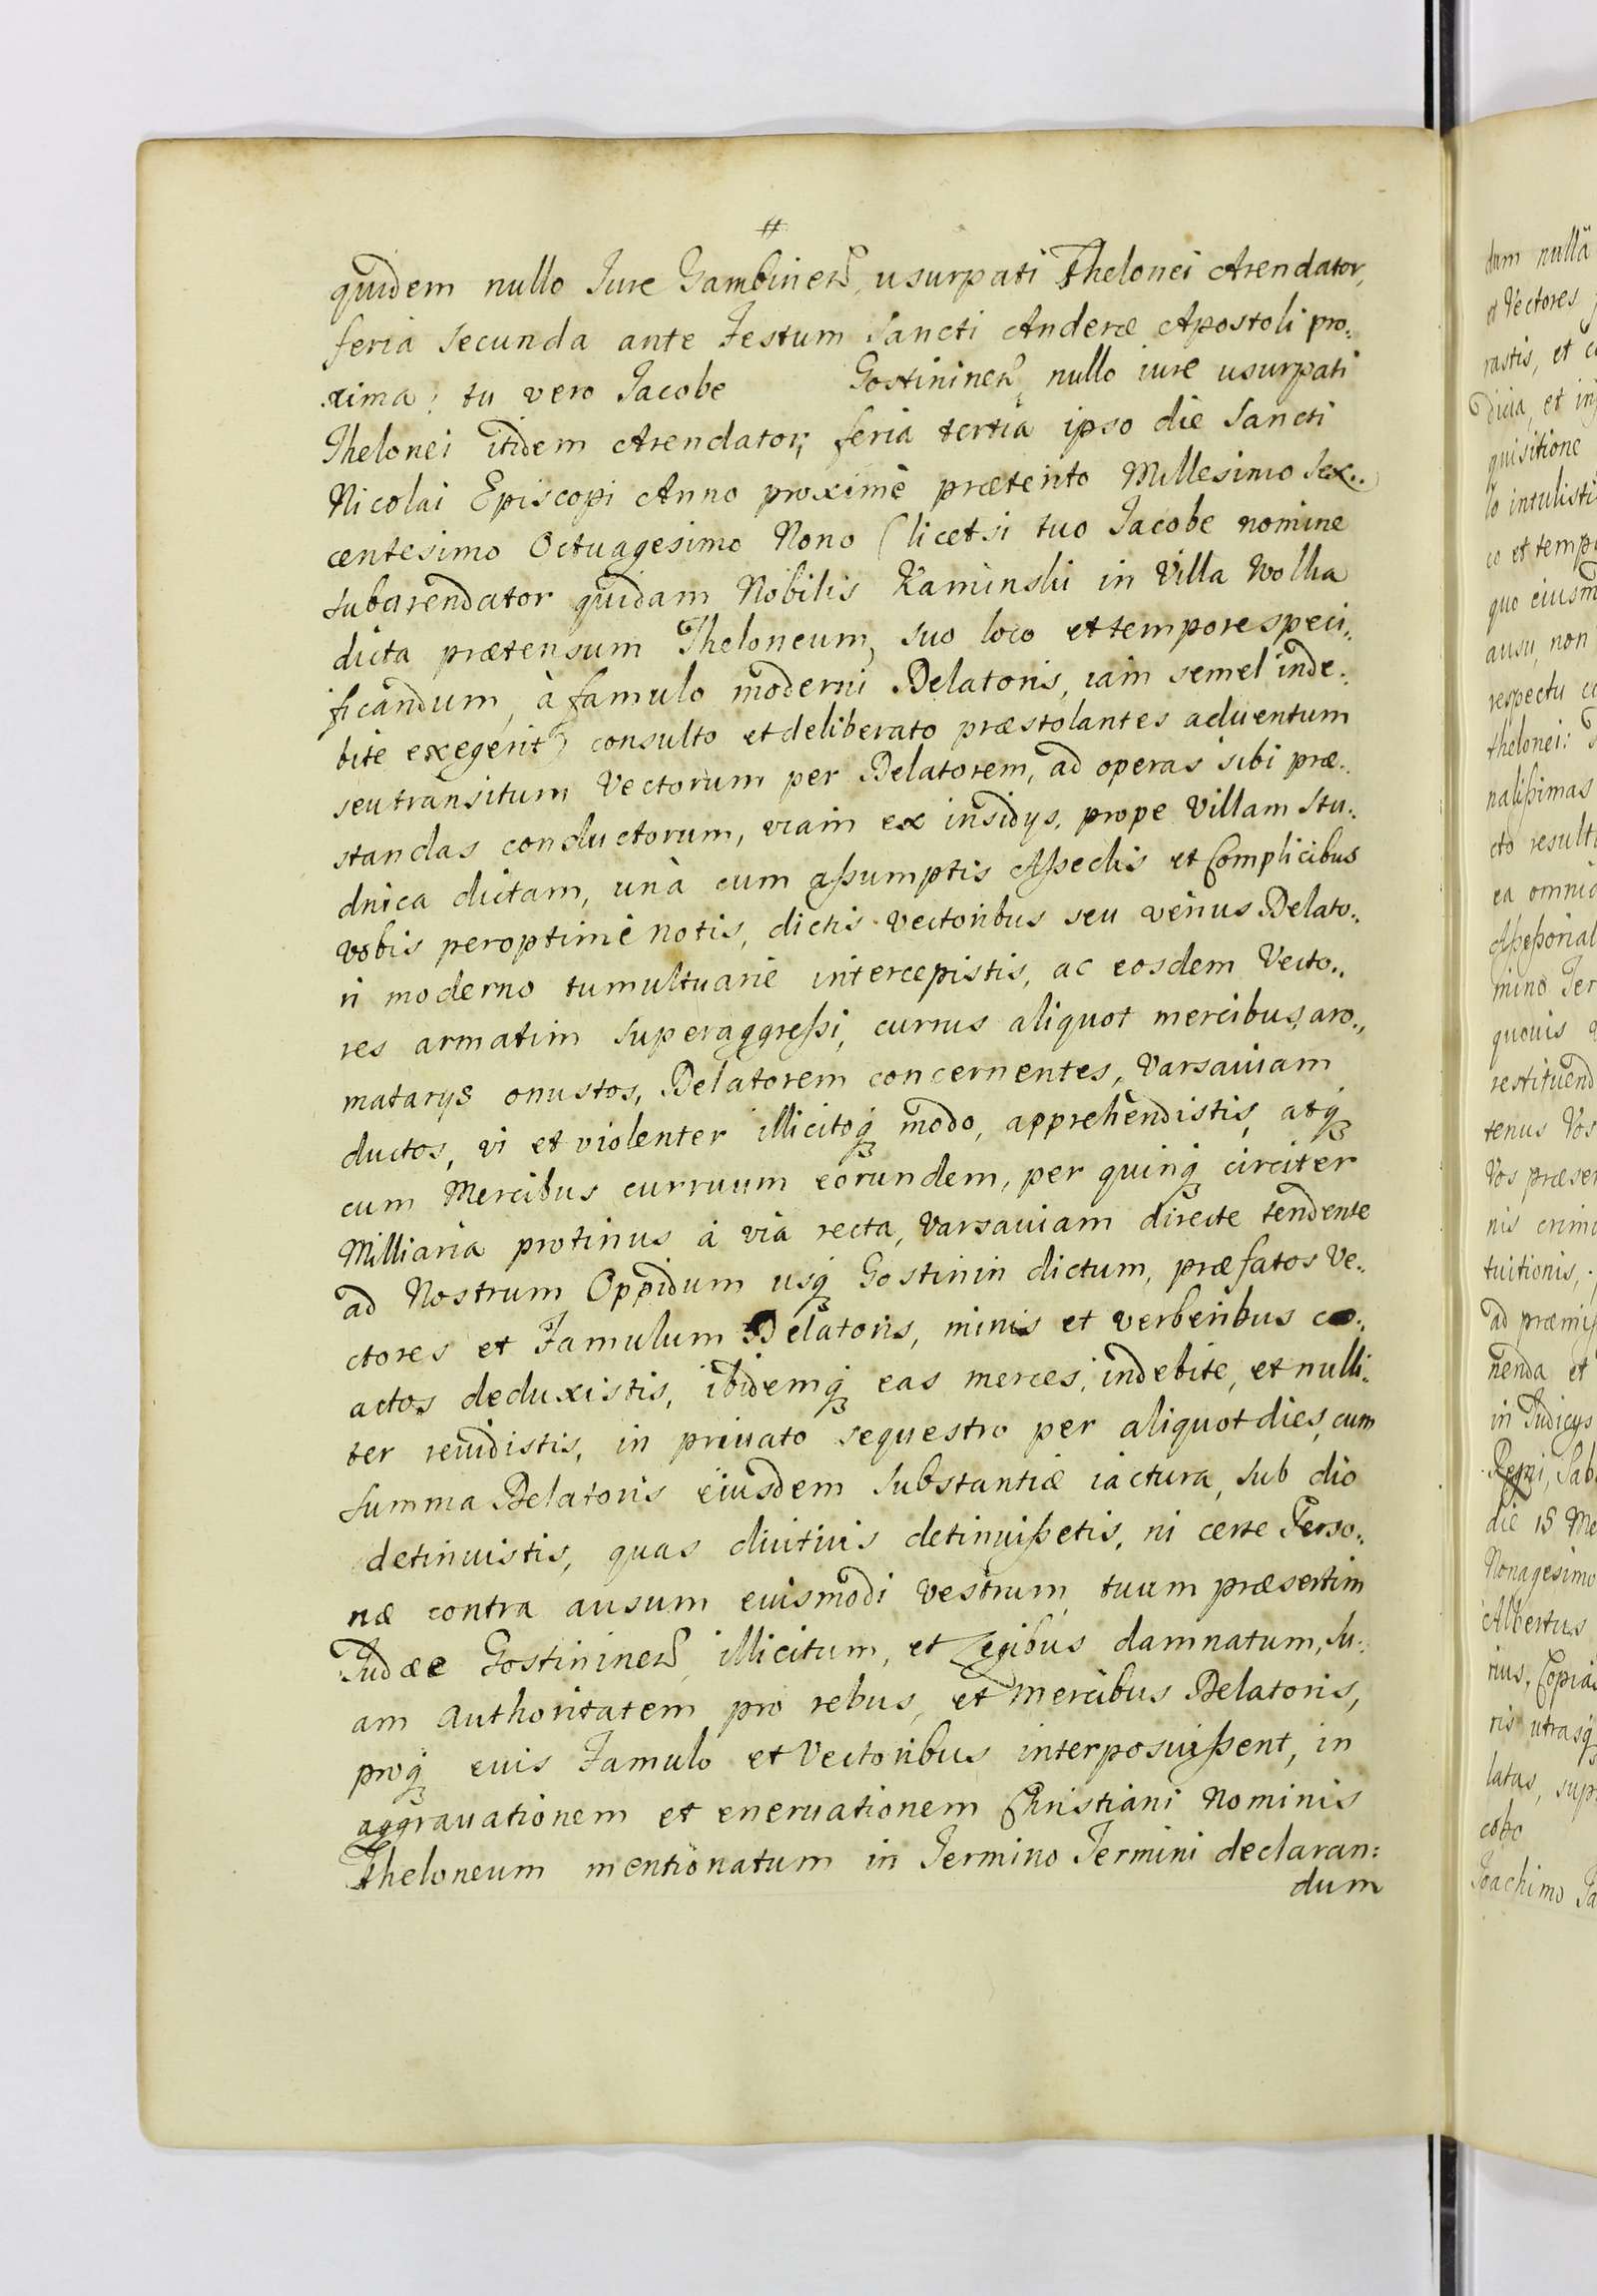 #
quidem nullo Iure Gambinen̄, usurpati Thelonei Arendator,
feria secunda ante Festum Sancti Anderæ Apostoli pro..
xima: tu vero Iacobe Gostininen̄, nullo iure usurpati
Thelonei itidem Arendator, feria tertia ipso die Sancti
Nicolai Episcopi Anno proximè præterito Millesimo Sex..
centesimo Octuagesimo Nono (licet si tuo Iacobe nomine
subarendator quidam Nobilis Kaminski in Villa Wolka
dicta prætensum Theloneum, suo loco et tempore speci..
ficandum, à famulo moderni Delatoris, iam semel inde..
bite exegerit) consulto et deliberato præstolantes aduentum
seu transitum Vectorum per Delatorem, ad operas sibi præ..
standas conductorum, viam ex insidys, prope Villam Stu..
dnica dictam, unà cum aßumptis Aßeclis et Complicibus
vobis peroptimè notis, dictis vectoribus seu verius Delato..
ri moderno tumultuarie intercepistis, ac eosdem Vecto..
res armatim superaggreßi, currus aliquot mercibus, aro..
matarys onustos, Delatorem concernentes, Varsauiam
ductos, vi et violenter illicitoq₃ modo, apprehendistis, atq₃
cum Mercibus curruum eorundem, per quinq₃ circiter
Milliaria protinus à via recta, Varsauiam directe tendente
ad Nostrum Oppidum usq₃ Gostinin dictum, præfatos Ve..
ctores et Famulum Delatoris, minis et verberibus co..
actos deduxistis, ibidemq₃ eas merces, indebite, et nulli..
ter reuidistis, in priuato sequestro per aliquot dies, cum
summa Delatoris eiusdem substantiæ iactura, sub dio
detinuistis, quas diutius detinuißetis, ni certe Perso..
næ contra ausum eiusmodi vestrum, tuum præsertim
Iudæe Gostininen̄, illicitum, et Legibus damnatum, su..
am authoritatem pro rebus, et mercibus Delatoris,
proq₃ euis Famulo et Vectoribus interposuißent, in
aggrauationem et eneruationem Christiani Nominis
Theloneum mentionatum in Termino Termini declaran:
dum